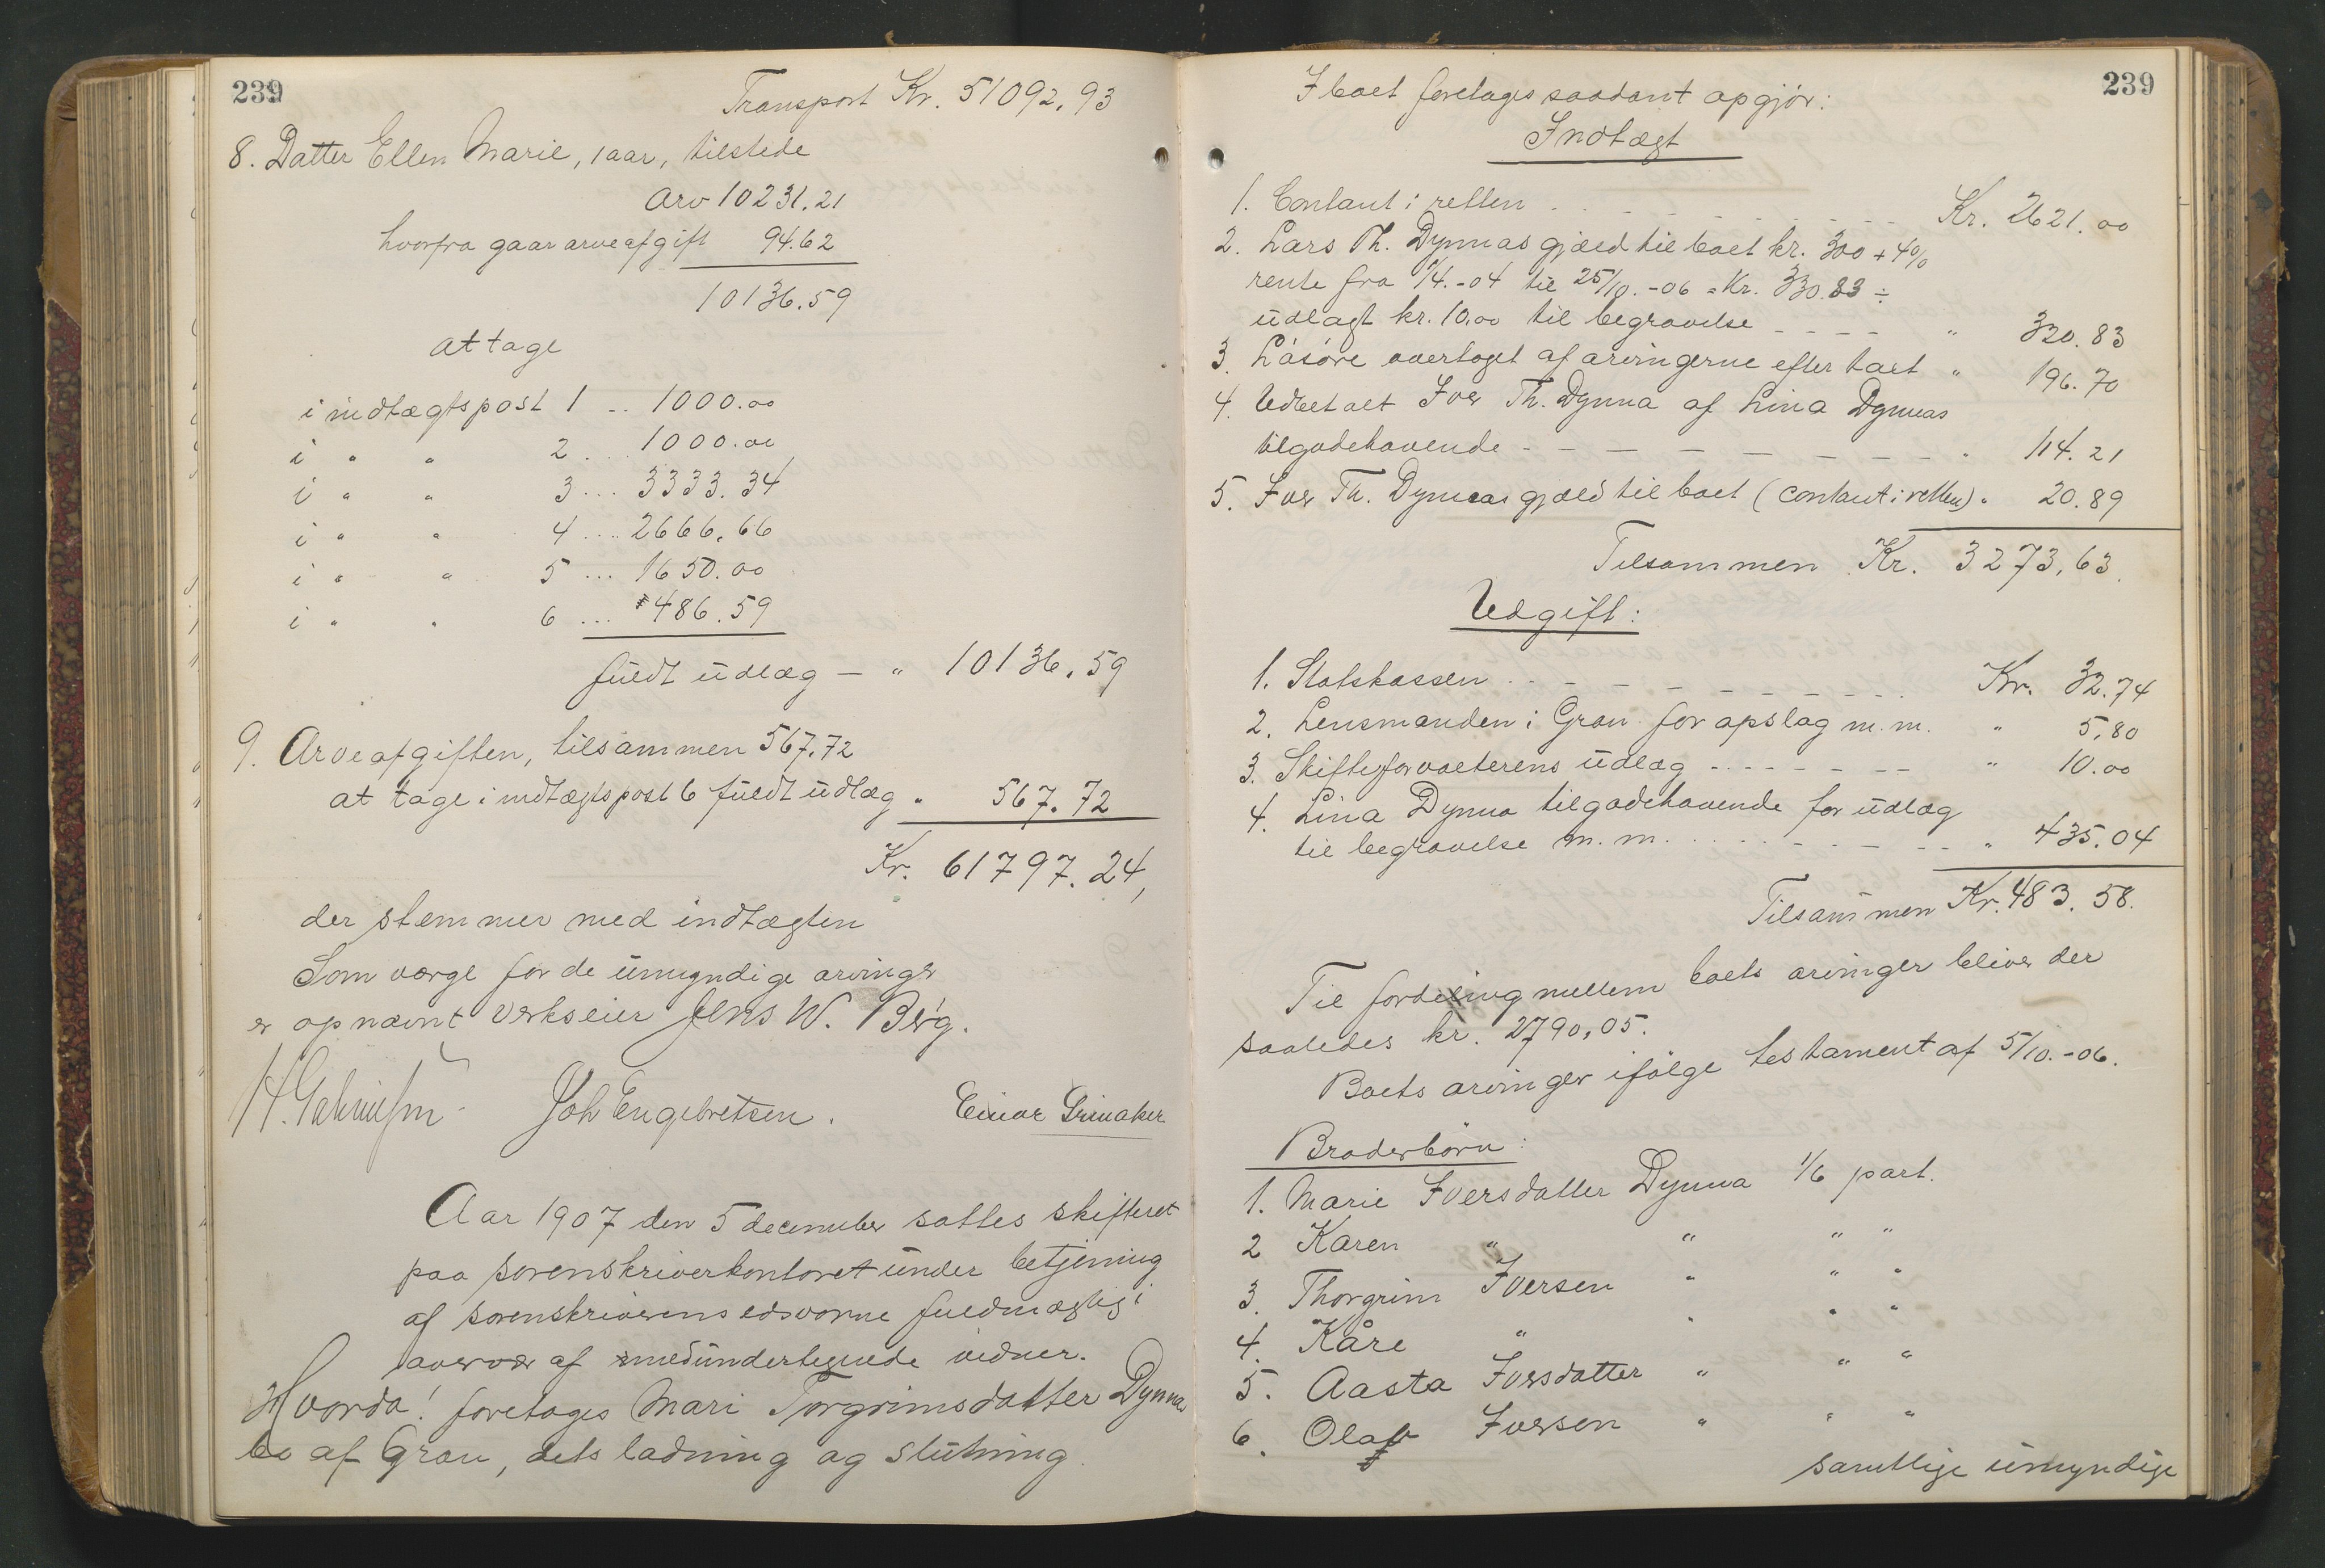 239
Transport Kr. 51092,93
8. Datter Ellen Marie, 1 aar, tilstede
Arv 10231.21
hvorfra gaar arveafgift 94.62
10136.59
at tage
i indtægtspost 1 .. 1000.00
i " " 2 .. 1000.00
i " " 3 ... 3333.34
i " " 4 ... 2666.66
i " " 5 ... 1650.00
i " " 6 ... 486.59
fuldt udlæg — " 10136.59
9. Arveafgiften, tilsammen 567.72
at tage i indtægtspost 6 fuldt udlæg " 567.72
Kr. 61797.24,
der stemmer med indtægten
Som værge for de umyndige arvinger
er opnævnt verkseier Jens W. Berg.
Joh Engebretsen. Einar Grinaker
Aar 1907 den 5 december sattes skifteret
paa sorenskriverkontoret under betjening
af sorenskriverens edsvorne fuldmægtig i
overvær af medundertegnede vidner.
Hvorda! foretoges Mari Torgrimsdatter Dynna
bo af Gran, dets ladning og slutning.
239
I boet foretages saadant opgjør:
Indtægt
1. Contant i retten . . . Kr. 2621.00
2. Lars Th. Dynnas gjæld til boet kr. 300 + 4%
rente fra 1/4.-04 til 25/10.-06 = Kr. 330.83 ÷
udlagt kr. 10.00 til begravelse - - - - " 320.83
3. Løsøre overtaget af arvingerne efter taxt " 196.70
4. Udbetalt Iver Th. Dynna af Lina Dynnas
tilgodehavende - - - - - - - - " 114.21
5. Iver Th. Dynnas gjæld til boet (contant i retten) " 20.89
Tilsammen Kr. 3273,63.
Udgift:
1. Statskassen - - - - - - - - Kr. 32.74
2. Lensmanden i Gran for opslag m. m. " 5,80
3. Skifteforvalterens udlæg - - - - - - " 10.00
4. Lina Dynna tilgodehavende for udlæg
til begravelse m. m. . . . - - - - " 435.04
Tilsammen Kr. 483.58.
Til fordeling mellem boets arvinger bliver der
saaledes kr. 2790,05.
Boets arvinger ifølge testament af 5/10.-06.
Broderbørn:
1. Marie Iversdatter Dynna 1/6 part.
2 Karen " " " "
3. Thorgrim Iversen " " "
4. Kåre " " " "
5. Aasta Iversdatter " " "
6. Olaf Iversen " " "
samtlige umyndige